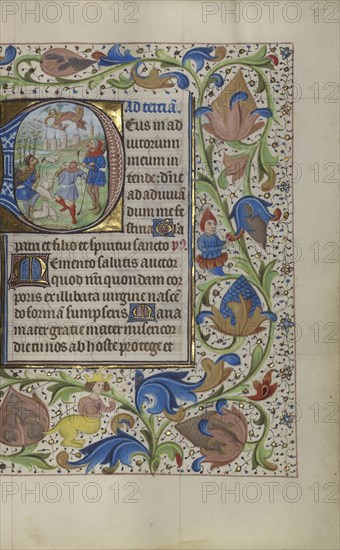 Ad tertiã.
Deus in ad
iutorium
meum in
tende: dñe
ad adiuuã
dum me fe
stina Glo
patri et filio et spiritui sancto ps
Memento salutis auctor
quod nr̃i quondam cor
poris ex illibata uirgine nasce
do formã sumpseris Maria
mater gratie mater misericor
die tu nos ab hoste protege et
PHOTO 12